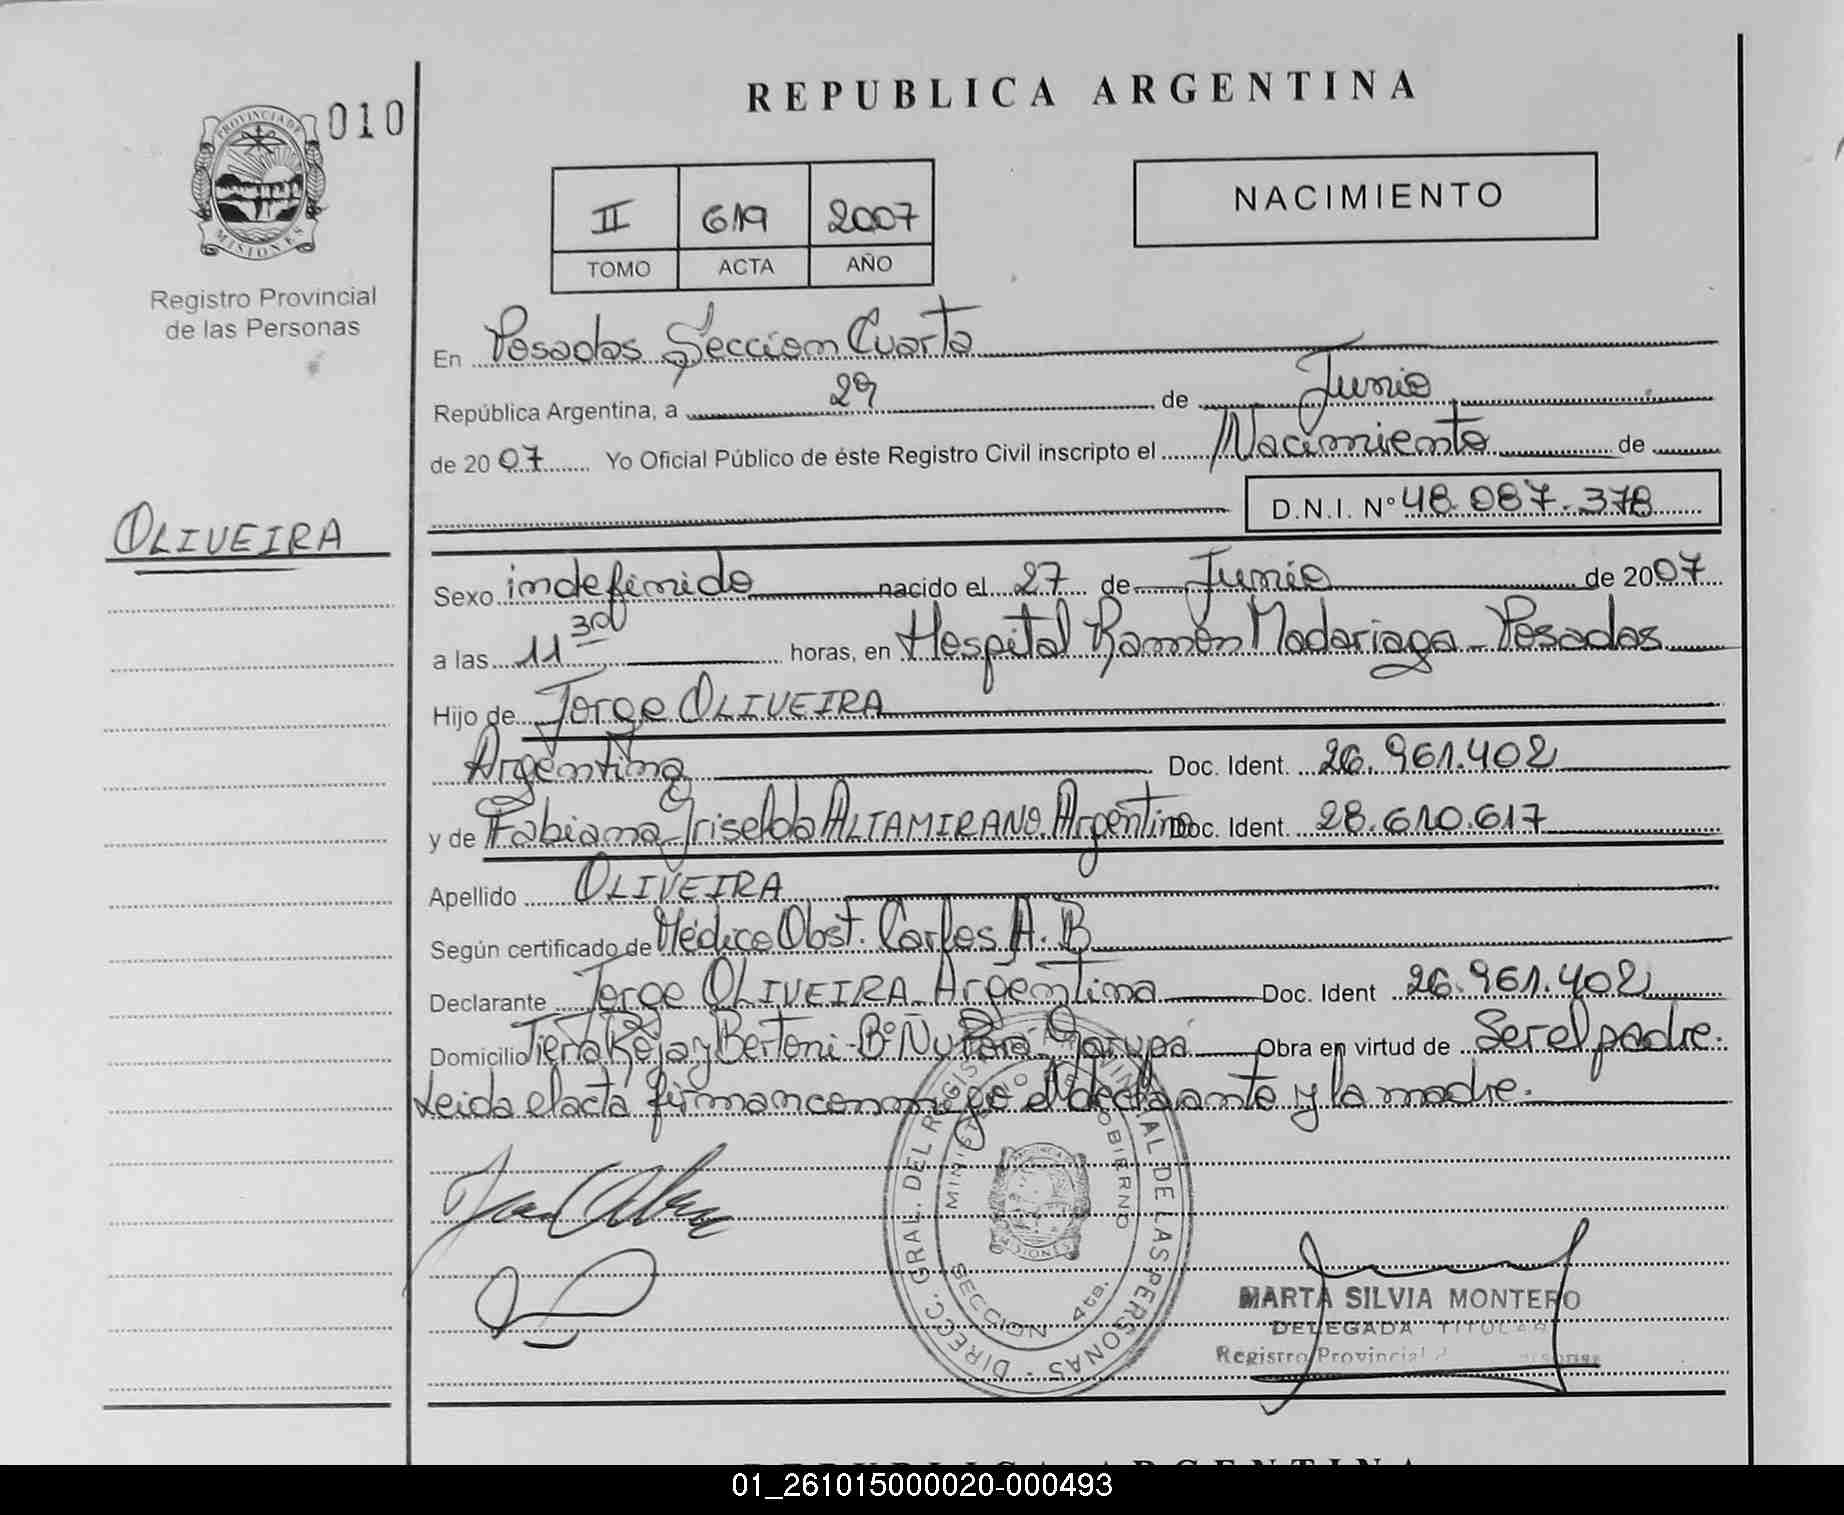 PROVINCIA DE
MISIONES
010
Registro Provincial
de las Personas
OLIVEIRA
REPUBLICA ARGENTINA
II 619 2007
TOMO ACTA AÑO
NACIMIENTO
En Posadas Sección Cuarta
República Argentina, a 29 de Junio
de 2007 Yo Oficial Público de éste Registro Civil inscripto el Nacimiento de
D.N.I. Nº 48.087.378
Sexo indefinido nacido el 27 de Junio de 2007
a las 11 30 horas, en Hospital Ramón Madariaga - Posadas
Hijo de Jorge OLIVEIRA
Argentina Doc. Ident. 26.961.402
y de Fabiana Griselda ALTAMIRANO Argentina Doc. Ident. 28.610.617
Apellido OLIVEIRA
Según certificado de Médico Obst. Carlos A. B
Declarante Jorge OLIVEIRA Argentina Doc. Ident 26.961.402
Domicilio Tierra Roja y Bertoni - Bº Ñu Porá - Garupá Obra en virtud de Ser el padre.
Leida el acta firman conmigo el declarante y la madre.
DIRECC. GRAL. DEL REGISTRO PROVINCIAL DE LAS PERSONAS
MINISTERIO DE GOBIERNO
MISIONES
SECCION 4ta.
MARTA SILVIA MONTERO
DELEGADA TITULAR
Registro Provincial
REPUBLICA ARGENTINA
01_261015000020-000493